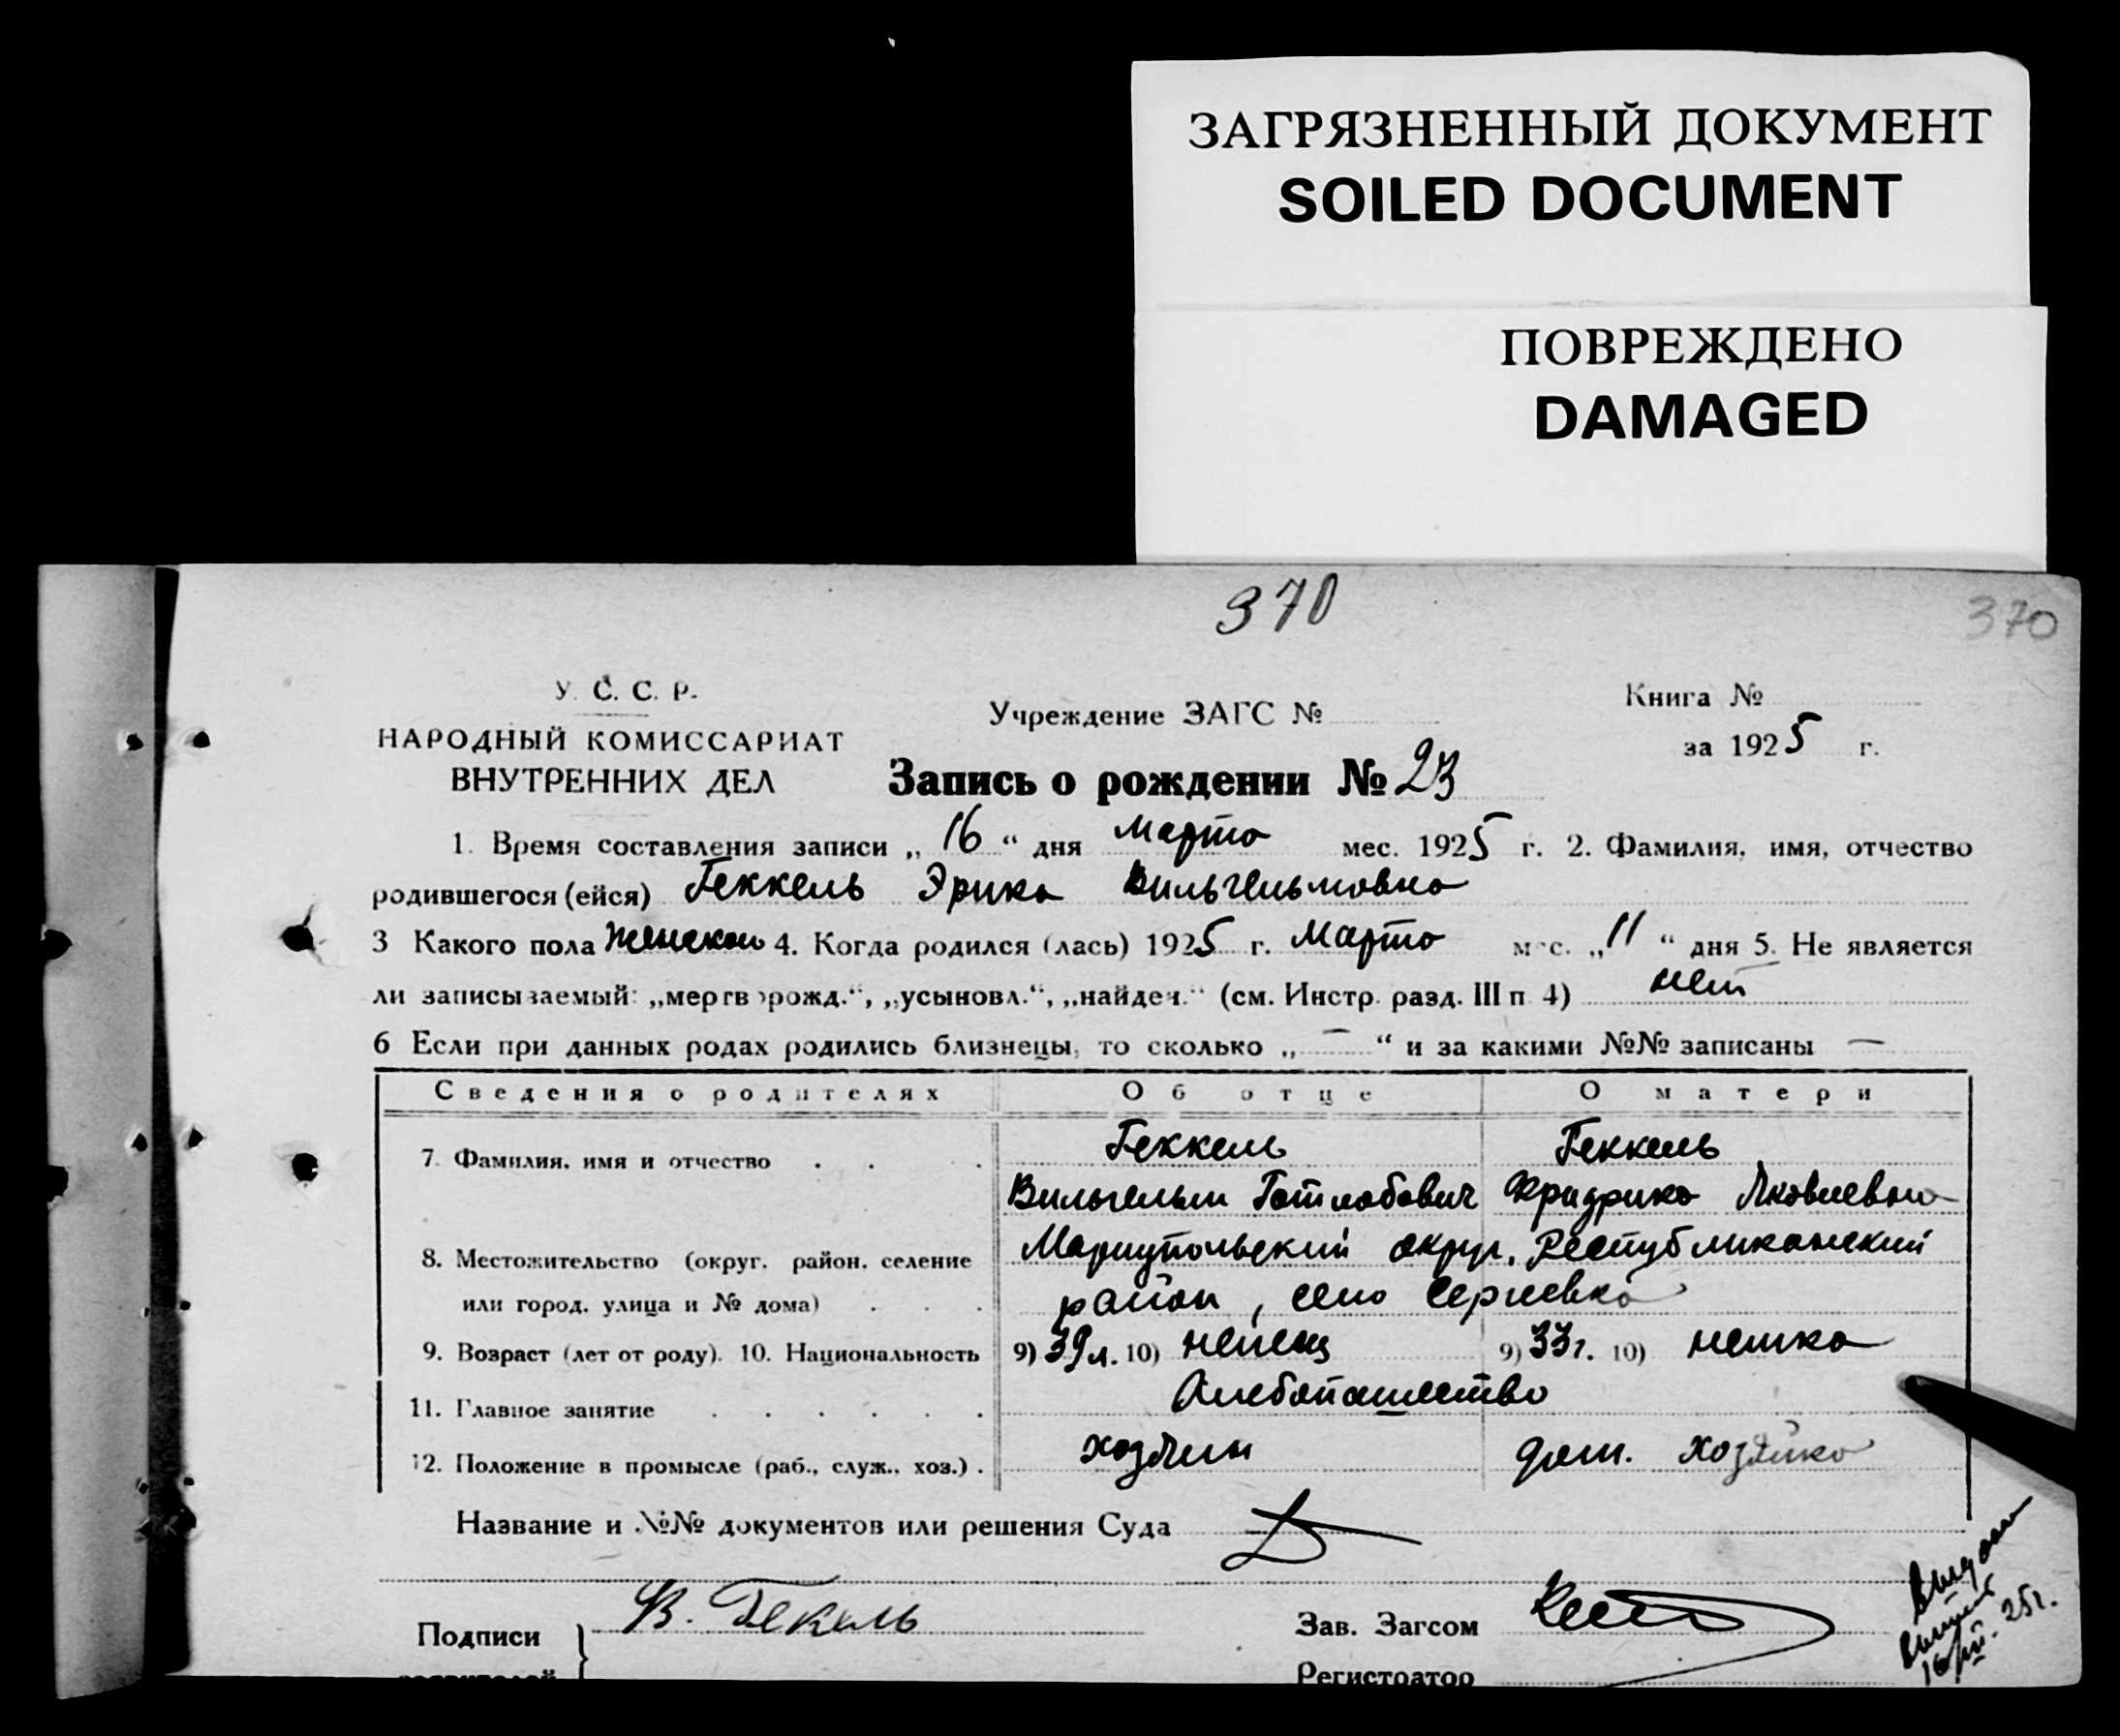 ЗАГРЯЗНЕННЫЙ ДОКУМЕНТ
SOILED DOCUMENT
ПОВРЕЖДЕНО
DAMAGED
370
370
У. С. С. Р.
НАРОДНЫЙ КОМИССАРИАТ
ВНУТРЕННИХ ДЕЛ
Учреждение ЗАГС №
Книга №
за 1925 г.
Запись о рождении № 23
1. Время составления записи „16“ дня Марта мес. 1925 г. 2. Фамилия, имя, отчество
родившегося (ейся) Геккель Эрика Вильгельмовна
3 Какого пола Женский 4. Когда родился (лась) 1925 г. Марта мес. „11“ дня 5. Не является
ли записываемый: „мертворожд.“, „усыновл.“, „найден.“ (см. Инстр. разд. III п 4) нет
6 Если при данных родах родились близнецы, то сколько „—“ и за какими №№ записаны —
Сведения о родителях Об отце О матери
7. Фамилия, имя и отчество . . . Геккель Геккель
Вильгельм Готлобович Фридрика Яковлевна
8. Местожительство (округ, район, селение Мариупольский округ, Республиканский
или город, улица и № дома) . . . район, село Сергеевка
9. Возраст (лет от роду). 10. Национальность 9) 39 л. 10) немец 9) 33 г. 10) немка
11. Главное занятие . . . . . . Хлебопашество
12. Положение в промысле (раб., служ., хоз.) . хозяин дом. хозяйка
Название и №№ документов или решения Суда
Подписи } В. Гекель
Зав. Загсом
Регистратор
25 г.